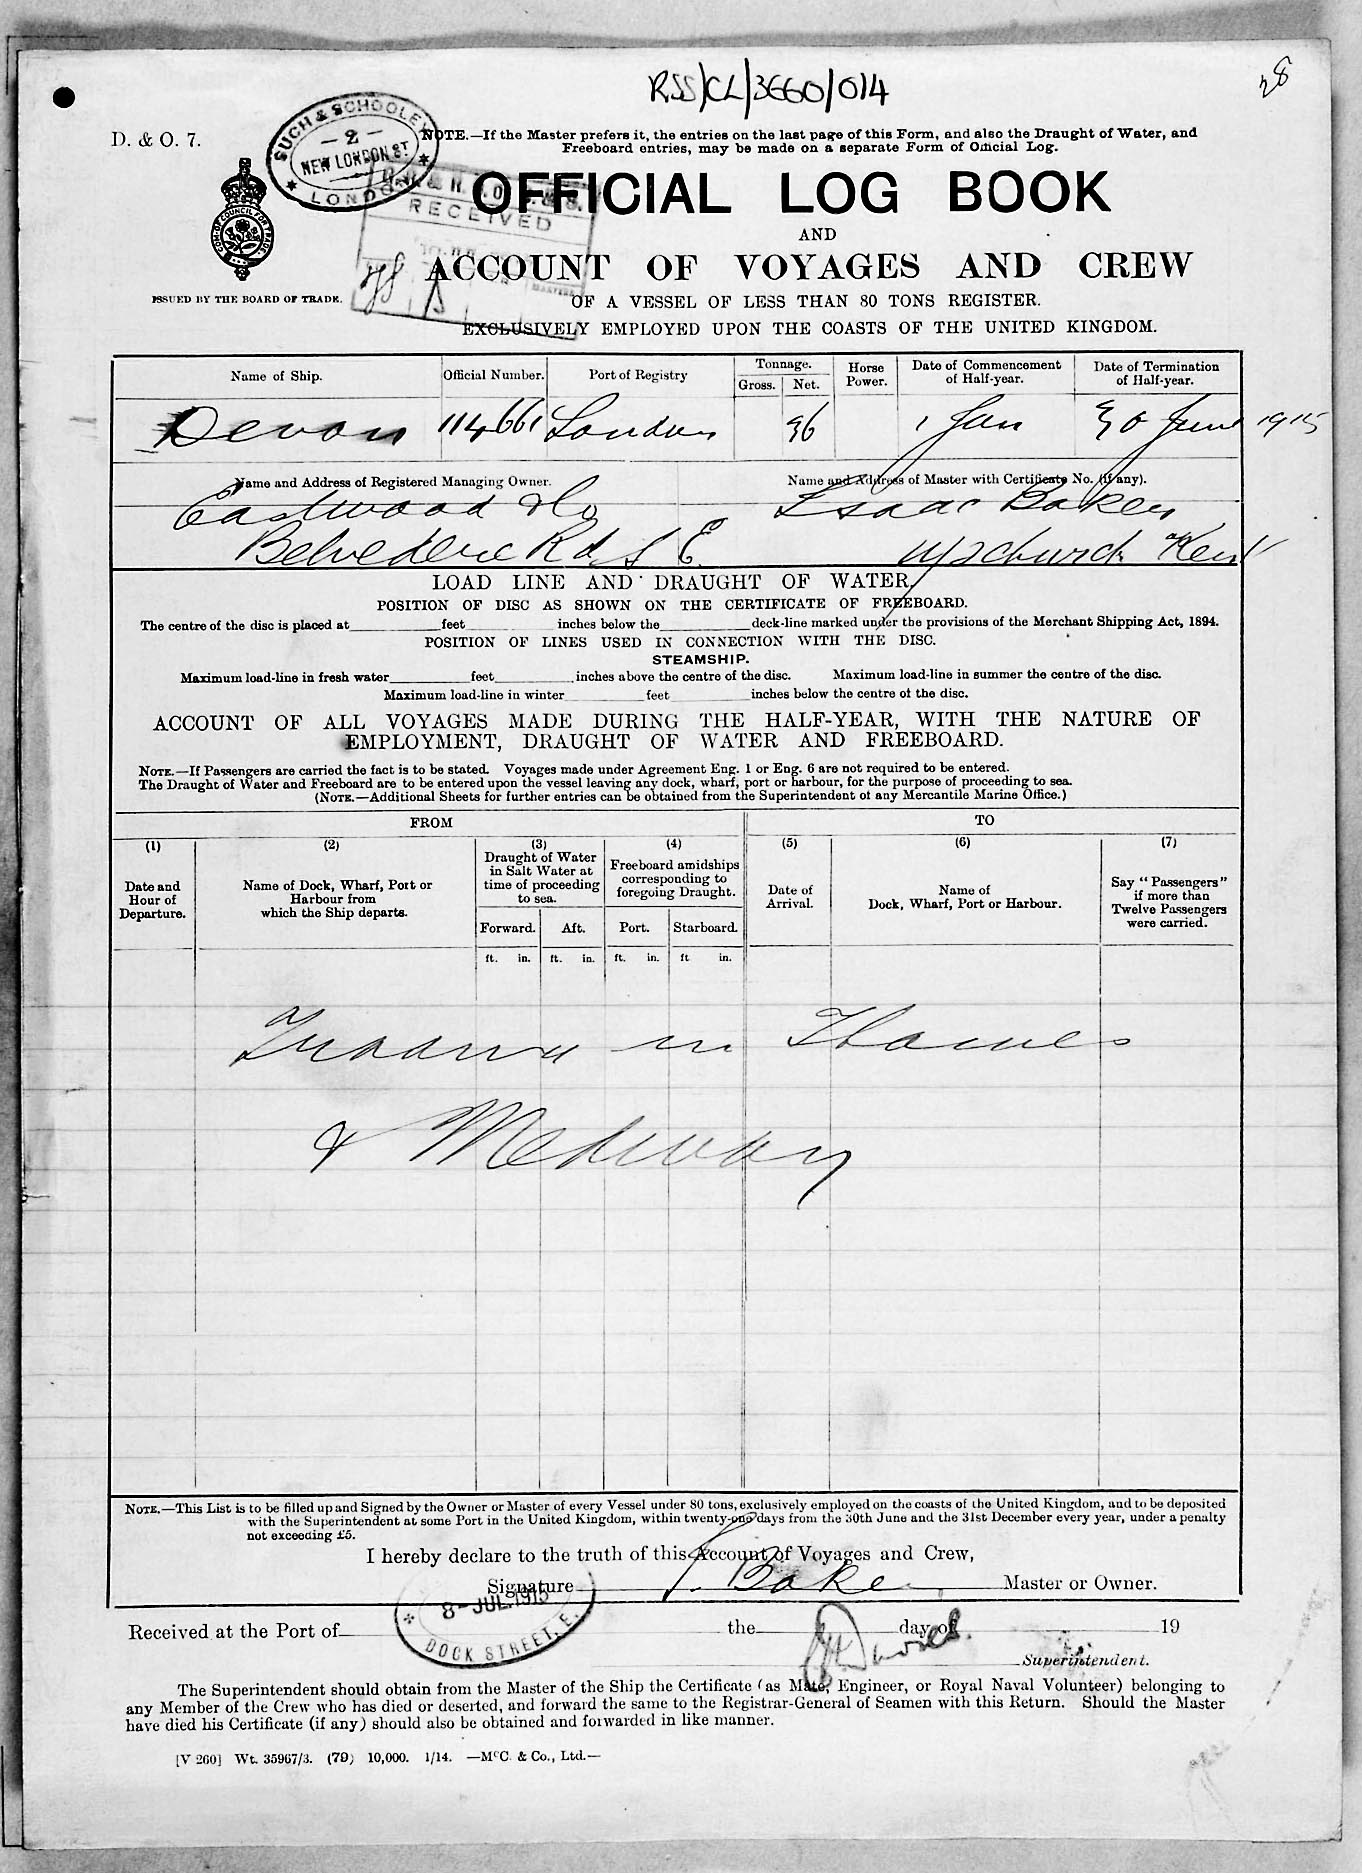 RSS/CL/3660/014
28
D. & O. 7.
SUCH & SCHOOLEY
— 2 —
NEW LONDON ST
LONDON
NOTE.—If the Master prefers it, the entries on the last page of this Form, and also the Draught of Water, and
Freeboard entries, may be made on a separate Form of Official Log.
RECEIVED
OFFICIAL LOG BOOK
AND
ACCOUNT OF VOYAGES AND CREW
ISSUED BY THE BOARD OF TRADE.
OF A VESSEL OF LESS THAN 80 TONS REGISTER.
EXCLUSIVELY EMPLOYED UPON THE COASTS OF THE UNITED KINGDOM.
Name of Ship. Official Number. Port of Registry Tonnage. Gross. Net. Horse Power. Date of Commencement of Half-year. Date of Termination of Half-year.
Devon 114661 London 36 1 Jan 30 June 1915
Name and Address of Registered Managing Owner. Name and Address of Master with Certificate No. (if any).
Eastwood & Co Isaac Baker
Belvedere Rd S E Upchurch Kent
LOAD LINE AND DRAUGHT OF WATER.
POSITION OF DISC AS SHOWN ON THE CERTIFICATE OF FREEBOARD.
The centre of the disc is placed at feet inches below the deck-line marked under the provisions of the Merchant Shipping Act, 1894.
POSITION OF LINES USED IN CONNECTION WITH THE DISC.
STEAMSHIP.
Maximum load-line in fresh water feet inches above the centre of the disc. Maximum load-line in summer the centre of the disc.
Maximum load-line in winter feet inches below the centre of the disc.
ACCOUNT OF ALL VOYAGES MADE DURING THE HALF-YEAR, WITH THE NATURE OF
EMPLOYMENT, DRAUGHT OF WATER AND FREEBOARD.
NOTE.—If Passengers are carried the fact is to be stated. Voyages made under Agreement Eng. 1 or Eng. 6 are not required to be entered.
The Draught of Water and Freeboard are to be entered upon the vessel leaving any dock, wharf, port or harbour, for the purpose of proceeding to sea.
(NOTE.—Additional Sheets for further entries can be obtained from the Superintendent of any Mercantile Marine Office.)
FROM TO
(1) (2) (3) (4) (5) (6) (7)
Date and Hour of Departure.
Name of Dock, Wharf, Port or Harbour from which the Ship departs.
Draught of Water in Salt Water at time of proceeding to sea.
Freeboard amidships corresponding to foregoing Draught.
Date of Arrival.
Name of Dock, Wharf, Port or Harbour.
Say "Passengers" if more than Twelve Passengers were carried.
Forward. Aft. Port. Starboard.
ft. in. ft. in. ft. in. ft in.
Trading in Thames
& Medway
NOTE.—This List is to be filled up and Signed by the Owner or Master of every Vessel under 80 tons, exclusively employed on the coasts of the United Kingdom, and to be deposited
with the Superintendent at some Port in the United Kingdom, within twenty-one days from the 30th June and the 31st December every year, under a penalty
not exceeding £5.
I hereby declare to the truth of this Account of Voyages and Crew,
Signature I. Baker Master or Owner.
8 - JUL. 1915
DOCK STREET, E.
Received at the Port of the day of 19
Superintendent.
The Superintendent should obtain from the Master of the Ship the Certificate (as Mate, Engineer, or Royal Naval Volunteer) belonging to
any Member of the Crew who has died or deserted, and forward the same to the Registrar-General of Seamen with this Return. Should the Master
have died his Certificate (if any) should also be obtained and forwarded in like manner.
[V 260] Wt. 35967/3. (79) 10,000. 1/14. —McC. & Co., Ltd.—